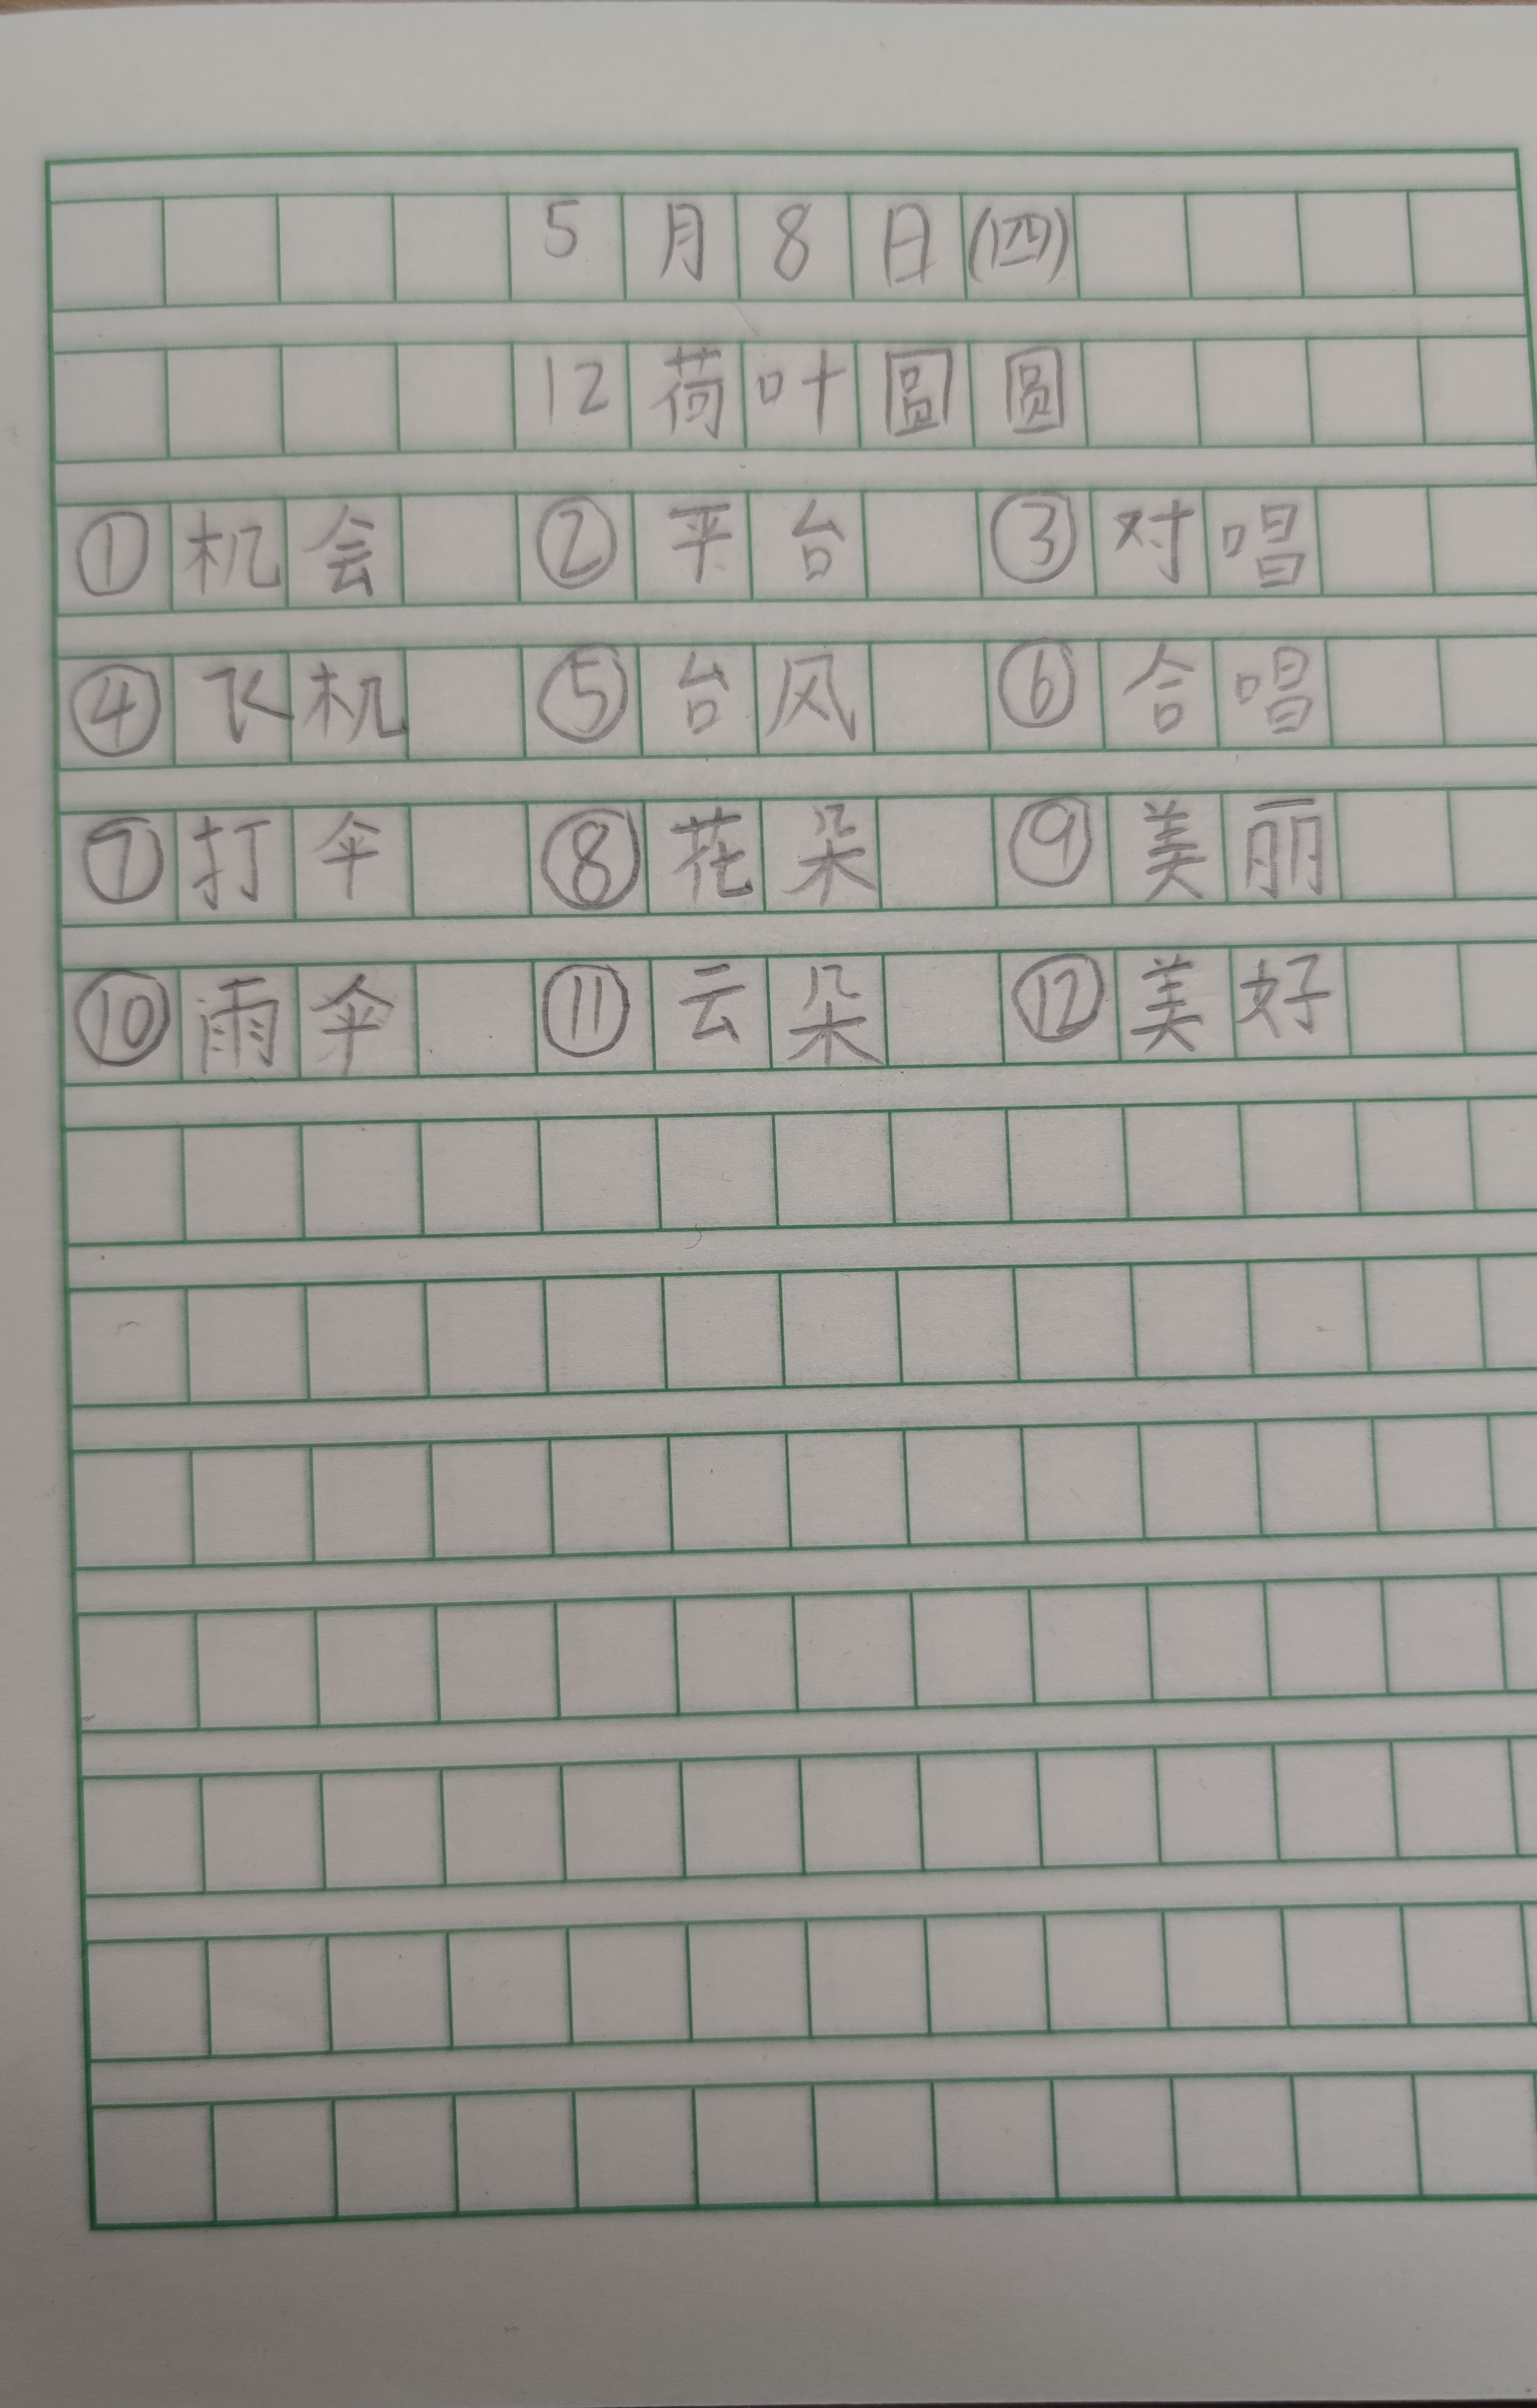 5月8日(四)
12荷叶圆圆
①机会 ②平台 ③对唱
④飞机 ⑤台风 ⑥合唱
⑦打伞 ⑧花朵 ⑨美丽
⑩雨伞 ⑪云朵 ⑫美好